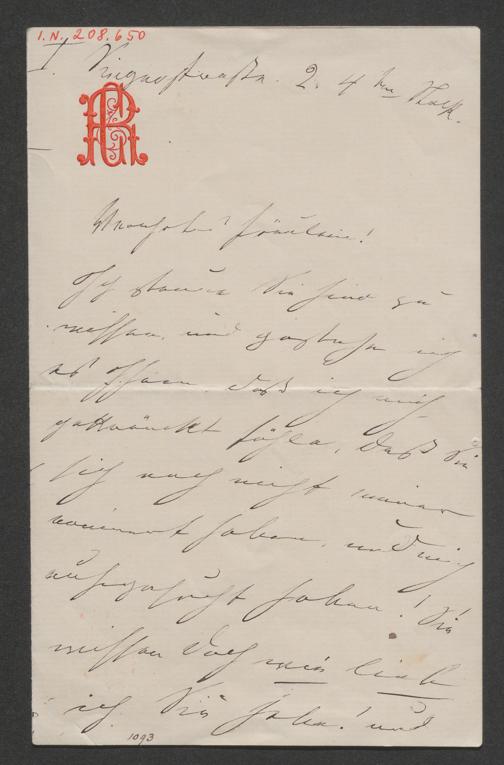 I.N. 208.650
I. 2. 4ten Stock.
RG
Fräulein!
Ich Sie sind zu
und gestehe ich
es offen, daß ich mich
gekränkt fühle, daß Sie
sich noch nicht meiner
erinnert haben, und mich
aufgesucht haben! Sie
wissen doch wie lieb
ich Sie habe! und
1093